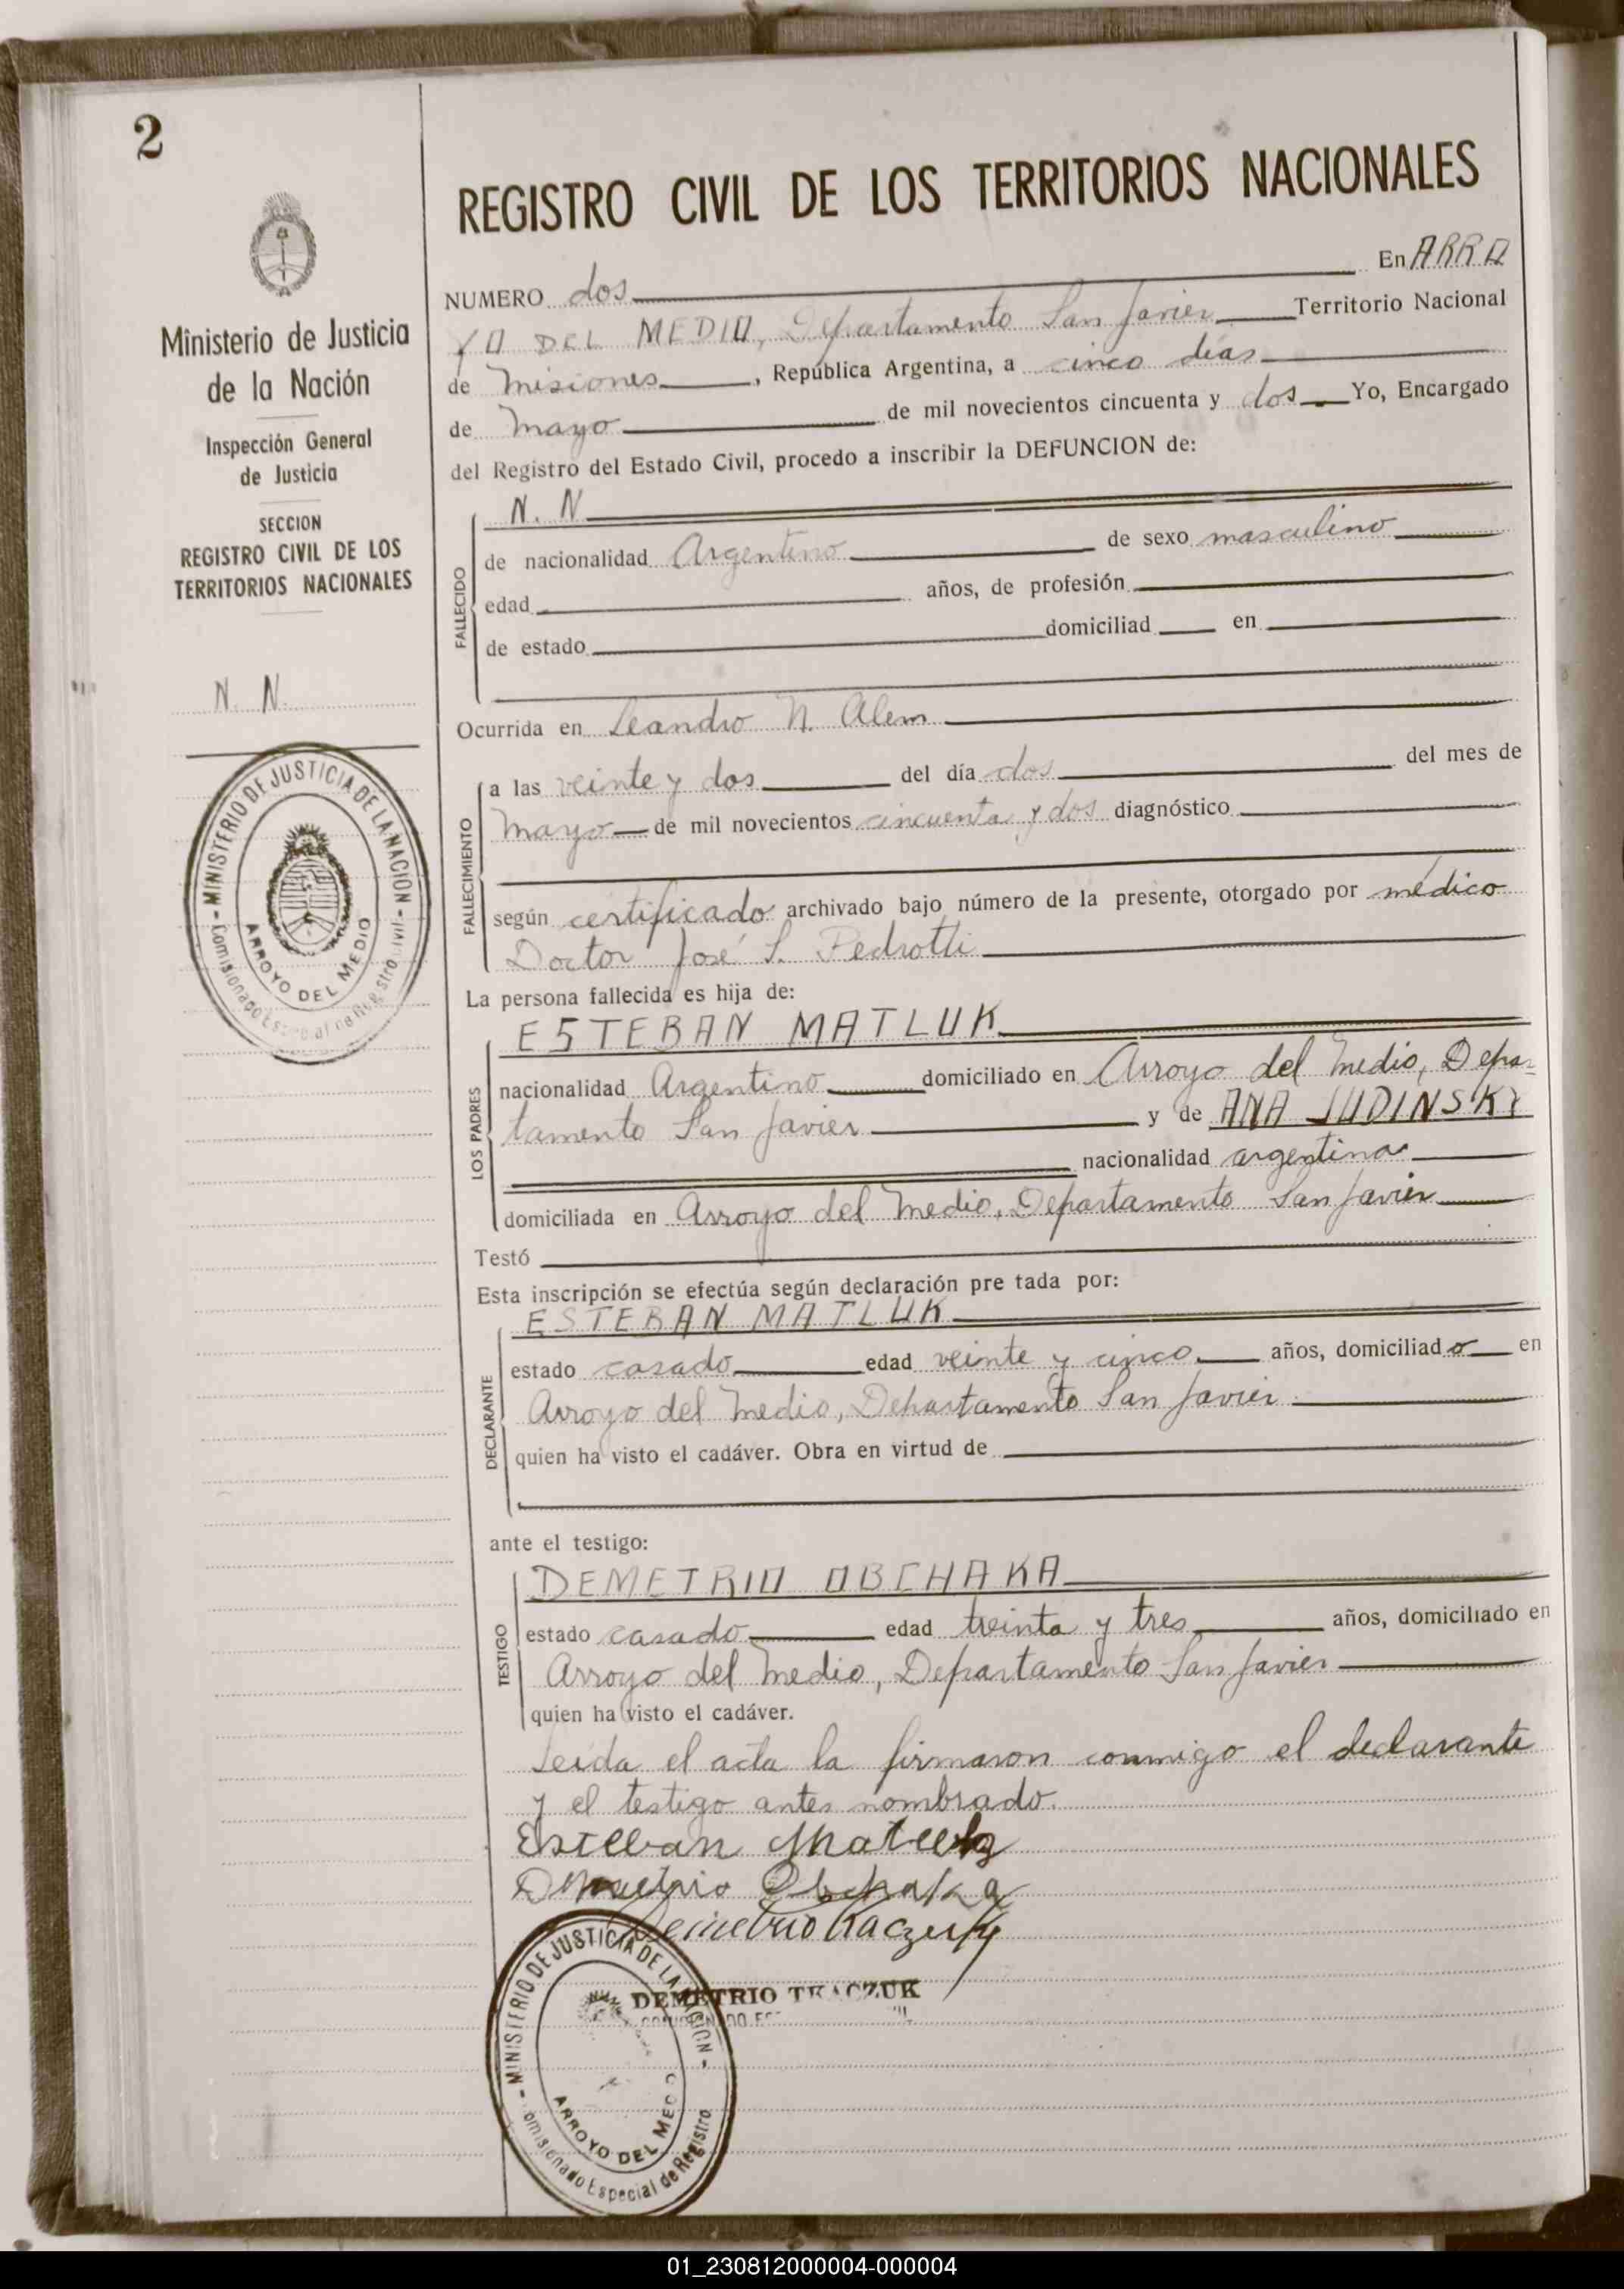 2
Ministerio de Justicia
de la Nación
Inspección General
de Justicia
SECCION
REGISTRO CIVIL DE LOS
TERRITORIOS NACIONALES
N. N.
- MINISTERIO DE JUSTICIA DE LA NACION -
Comisionado Especial de Registro Civil
ARROYO DEL MEDIO
REGISTRO CIVIL DE LOS TERRITORIOS NACIONALES
NUMERO dos En ARRO
YO DEL MEDIO, Departamento San Javier Territorio Nacional
de Misiones, República Argentina, a cinco días
de Mayo de mil novecientos cincuenta y dos Yo, Encargado
del Registro del Estado Civil, procedo a inscribir la DEFUNCION de:
FALLECIDO
N. N
de nacionalidad Argentino de sexo masculino
edad años, de profesión
de estado domiciliad en
Ocurrida en Leandro N. Alem
FALLECIMIENTO
a las veinte y dos del día dos del mes de
Mayo de mil novecientos cincuenta y dos diagnóstico
según certificado archivado bajo número de la presente, otorgado por médico
Doctor José S. Pedrotti
La persona fallecida es hija de:
LOS PADRES
ESTEBAN MATLUK
nacionalidad Argentino domiciliado en Arroyo del Medio, Depar-
tamento San Javier y de ANA JUDINSKY
nacionalidad argentina
domiciliada en Arroyo del Medio, Departamento San Javier
Testó
Esta inscripción se efectúa según declaración pre tada por:
DECLARANTE
ESTEBAN MATLUK
estado casado edad veinte y cinco años, domiciliado en
Arroyo del Medio, Departamento San Javier
quien ha visto el cadáver. Obra en virtud de
ante el testigo:
TESTIGO
DEMETRIO OBCHAKA
estado casado edad treinta y tres años, domiciliado en
Arroyo del Medio, Departamento San Javier
quien ha visto el cadáver.
Leída el acta la firmaron conmigo el declarante
y el testigo antes nombrado.
Esteban Matluk
Demetrio Obchaka
Demetrio Kaczuk
DEMETRIO TKACZUK
- MINISTERIO DE JUSTICIA DE LA NACION -
omisionado Especial de Registro
ARROYO DEL MEDIO
01_230812000004-000004